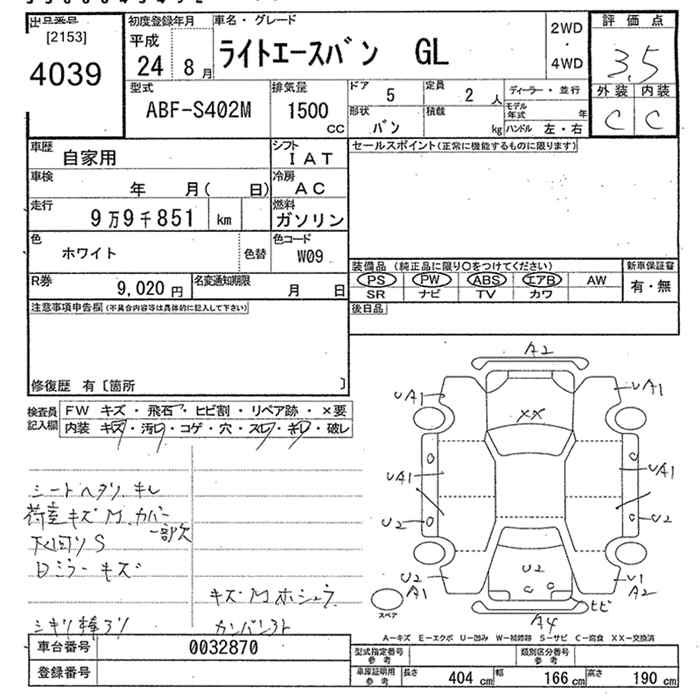 出品番号
[2153]
4039
初度登録年月
平成
24 8月
車名・グレード
ライトエースバン GL
2WD
・
4WD
評価点
3.5
外装 内装
C C
型式
ABF-S402M
排気量
1500
CC
ドア
5
定員
2人
形状
バン
積載
kg
ディーラー・並行
モデル年式 年
ハンドル 左・右
車歴
自家用
シフト
IAT
車検
年 月( 日)
冷房
AC
走行
9万9千851 km
燃料
ガソリン
色
ホワイト
色替
色コード
W09
R券
9,020円
名変通知期限
月 日
セールスポイント(正常に機能するものに限ります)
装備品 (純正品に限り○をつけてください)
PS PW ABS エアB AW
SR ナビ TV カワ
新車保証書
有・無
後日品
注意事項申告欄(不具合内容等は具体的に記入して下さい)
修復歴 有〔箇所 〕
検査員記入欄
FW キズ・飛石・ヒビ割・リペア跡・×要
内装 キズ・汚レ・コゲ・穴・スレ・キレ・破レ
シートヘタリ、キレ
荷室キズM、カバー
一部欠
下回りS
Dミラーキズ
キズM ホシュウ
A2
UA1 UA1
XX
UA1 UA1
U2 U2
U2
A1
U2
U1
A2
ヒビ
A4
スペア
A-キズ E-エクボ U-凹み W-補修跡 S-サビ C-腐食 XX-交換済
車台番号
0032870
登録番号
型式指定番号
参考
類別区分番号
参考
車庫証明用
参考
長さ 404cm 幅 166cm 高さ 190cm